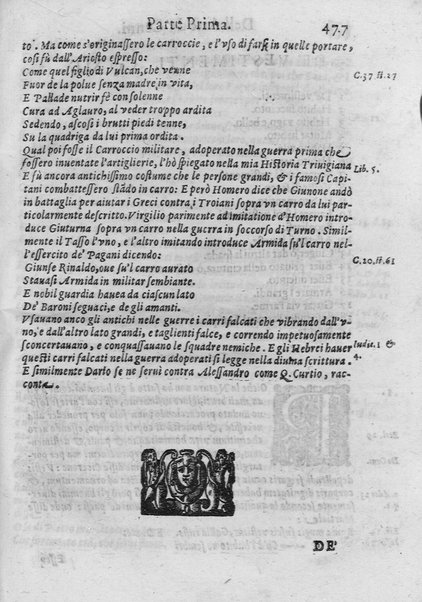 Parte Prima. 477
to. Ma come s'originassero le carroccie, e l'vso di farsi in quelle portare,
così fù dall'Ariosto espresso:
Come quel figlio di Vulcan, che venne
Fuor de la polue senza madre in vita,
E Pallade nutrir fè con solenne
Cura ad Aglauro, al veder troppo ardita
Sedendo, ascosi i brutti piedi tenne,
Su la quadriga da lui prima ordita.
C.37 st.27
Qual poi fosse il Carroccio militare, adoperato nella guerra prima che
fossero inuentate l'artiglierie, l'hò spiegato nella mia Historia Triuigiana
Lib. 5.
E fù ancora antichissimo costume che le persone grandi, & i famosi Capi-
tani combattessero stãdo in carro: E però Homero dice che Giunone andò
in battaglia per aiutar i Greci contra i Troiani sopra vn carro da lui par-
ticolarmente descritto. Virgilio parimente ad imitatione d'Homero intro-
duce Giuturna sopra vn carro nella guerra in soccorso di Turno. Simil-
mente il Tasso l'vno, e l'altro imitando introduce Armida su'l carro nel-
l'essercito de' Pagani dicendo:
Giunse Rinaldo, oue su'l carro aurato
Stauasi Armida in militar sembiante.
E nobil guardia hauea da ciascun lato
De' Baroni seguaci, e de gli amanti.
C.20. st.61
Vsauano anco gli antichi nelle guerre i carri falcati che vibrando dall'v-
no, e dall'altro lato grandi, e taglienti falce, e correndo impetuosamente
sconcertauano, e conquassauano le squadre nemiche. E gli Hebrei hauer
Iudic. 1 &
4.
questi carri falcati nella guerra adoperati si legge nella diuina scrittura.
E similmente Dario se ne seruì contra Alessandro come Q. Curtio, rac-
conta.
DE'